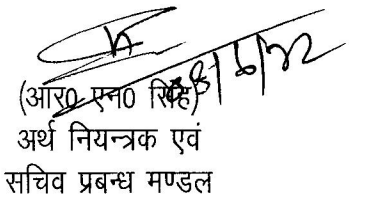 (आर0 एन0 सिंह)
अर्थ नियन्त्रक एवं
सचिव प्रबन्ध मण्डल